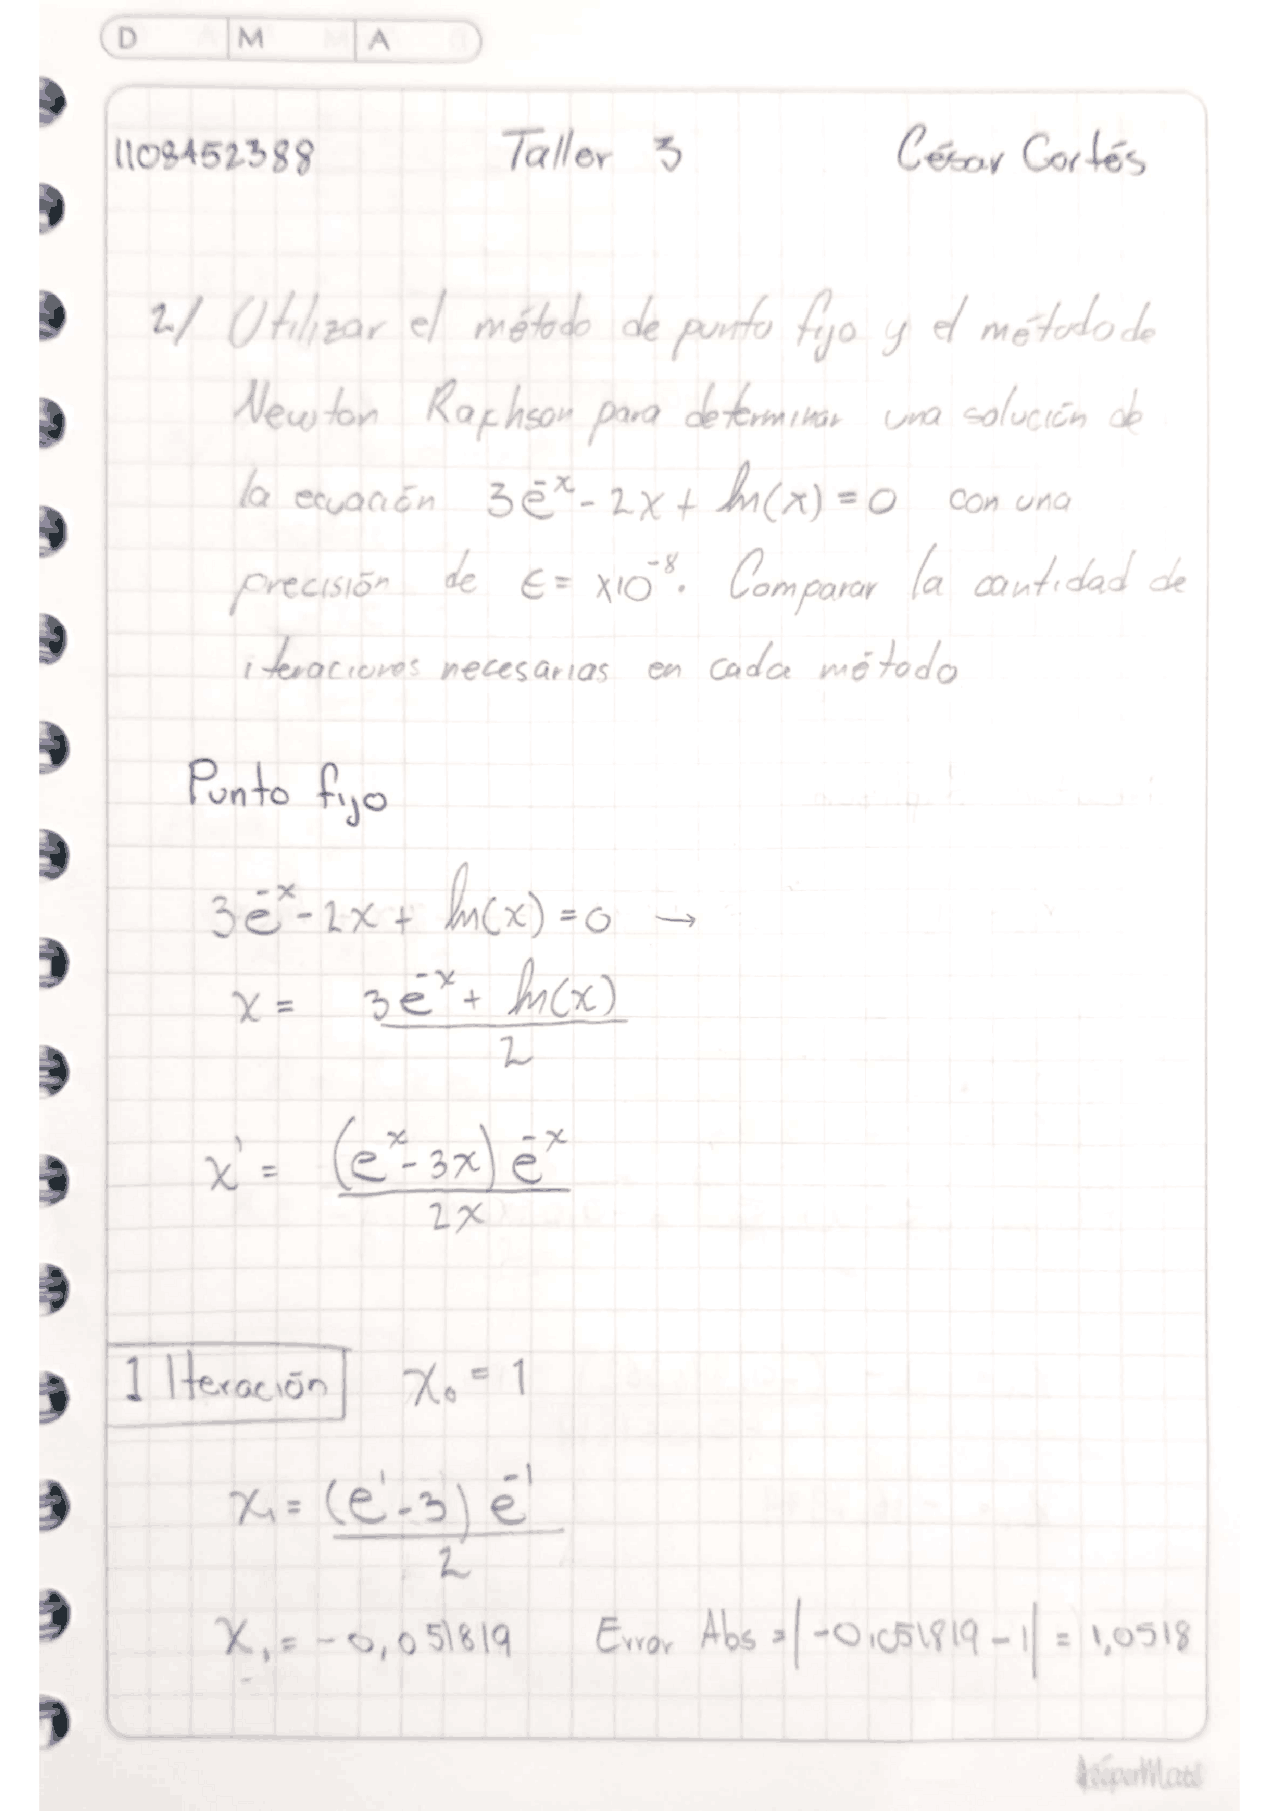 D M A
1108452388 Taller 3 César Cortés
2/ Utilizar el método de punto fijo y el método de
Newton Raphson para determinar una solución de
la ecuación 3e⁻ˣ - 2x + ln(x) = 0 con una
precisión de ϵ = x10⁻⁸. Comparar la cantidad de
iteraciones necesarias en cada método
Punto fijo
3e⁻ˣ - 2x + ln(x) = 0 →
x = (3e⁻ˣ + ln(x)) / 2
x' = (eˣ - 3x) e⁻ˣ / 2x
1 Iteración x₀ = 1
x₁ = (e¹ - 3) e⁻¹ / 2
x₁ = -0,051819 Error Abs = |-0,051819 - 1| = 1,0518